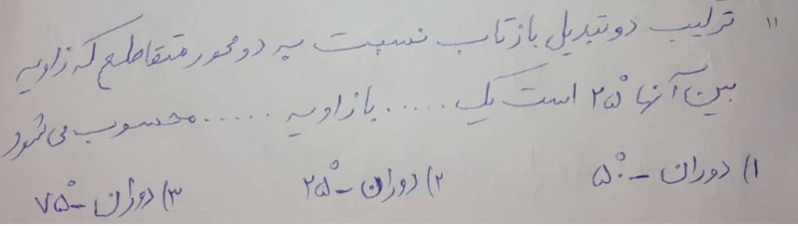 ۱۱ ترکیب دو تبدیل بازتاب نسبت به دو محور متقاطع که زاویه
بین آنها ۲۵° است یک ..... با زاویه ..... محسوب می شود
۱) دوران - ۵۰° ۲) دوران - ۲۵° ۳) دوران - ۷۵°